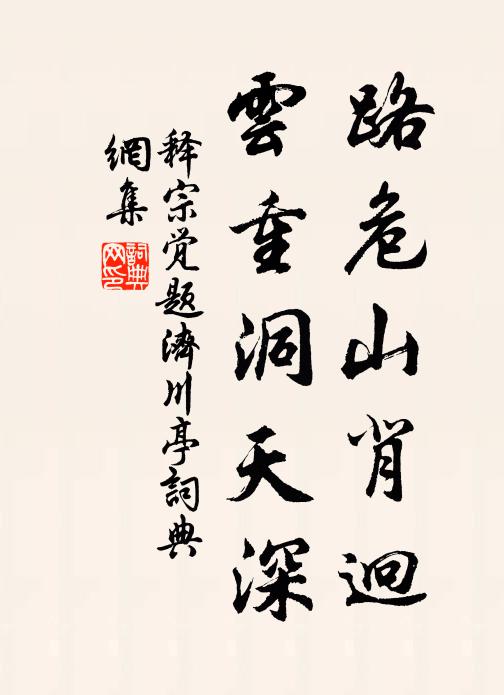 路危山背迥
雲重洞天深
释宗觉题濟川亭詞典
網集
詞典
网印